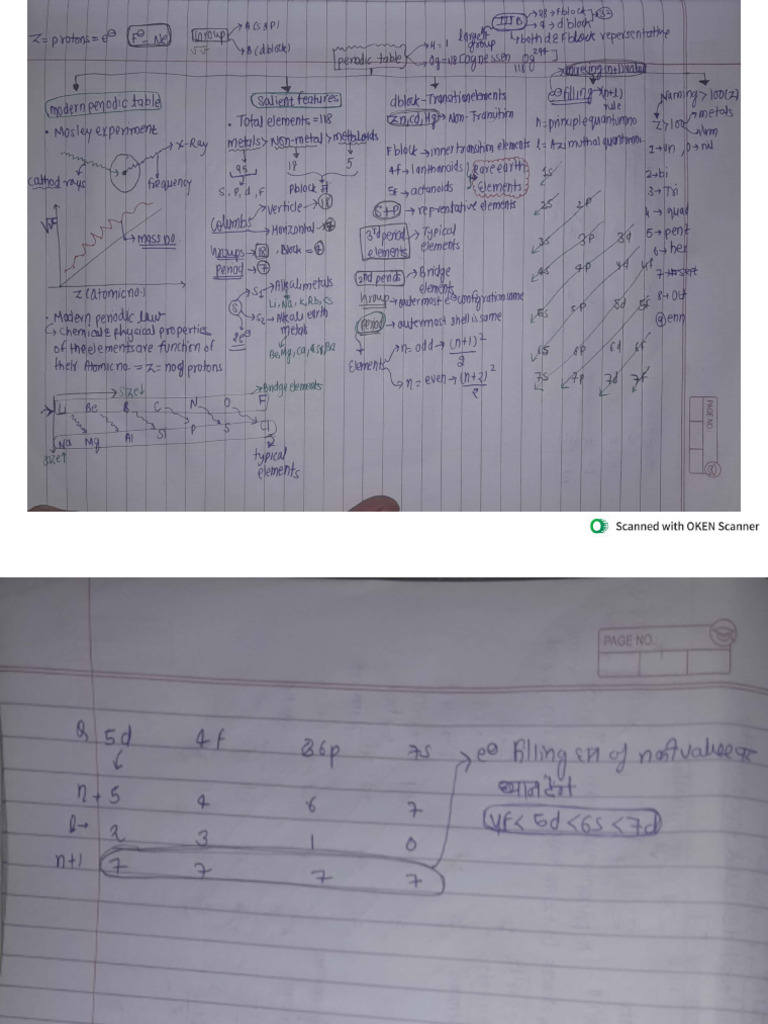 Z = protons = e⊖
F⊖ - Ne
Group
A (s & p)
B (d block)
periodic table
H = 1
Og = 118 Cognessen
118 Og 294
largest group
III B
28 → f block
4 → d block
32
both d & F block repersentative
modern periodic table
• Mosley experiment
x-Ray
cathod-rays
frequency
√v
mass no.
Z (atomic no.)
• Modern periodic law
↳ chemical & physical properties
of the elements are function of
their Atomic no. = Z = no of protons
size↓
Bridge elements
Li Be B C N O F
Na Mg Al Si P S Cl
size↑
typical
elements
Salient features
• Total elements = 118
metals > Non-metal > metalloids
95 18 5
S, P, d, F
P block
Columbs
verticle → 18
Horizontal → 7
Groups → 18, Block = 4
Period → 7
S
S1 → Alkali metals
Li, Na, K, Rb, Cs
S2 → Alkali earth
metals
Be, Mg, Ca, Sr, Ba
d block - Transition elements
Zn, Cd, Hg → Non-Transition
F block → inner transition elements
4f → lanthanoids
5f → actanoids
rare earth
elements
S + P → representative elements
3rd period
elements
→ Typical
elements
2nd periods → Bridge
elements
Group → outermost e⊖ configration same
Period → outermost shell is same
Elements
n = odd → (n+1)²
2
n = even → (n+2)²
2
e⊖ filling → (n+l)
rule
n = principle quantum no
l = Azimuthal quantum no
1s
2s 2p
3s 3p 3d
4s 4p 4d 4f
5s 5p 5d 5f
6s 6p 6d 6f
7s 7p 7d 7f
Naming > 100 (Z)
Z > 100
metals
ium
1 → un, 0 → nil
2 → bi
3 → Tri
4 → quad
5 → pent
6 → hex
7 → sept
8 → Oct
9 enn
PAGE NO.
Scanned with OKEN Scanner
PAGE NO.:
Q 5d 4f 6p 7s
n → 5 4 6 7
l → 2 3 1 0
n+l 7 7 7 7
→ e⊖ filling of value
ध्यान देना
4f < 5d < 6s < 7d